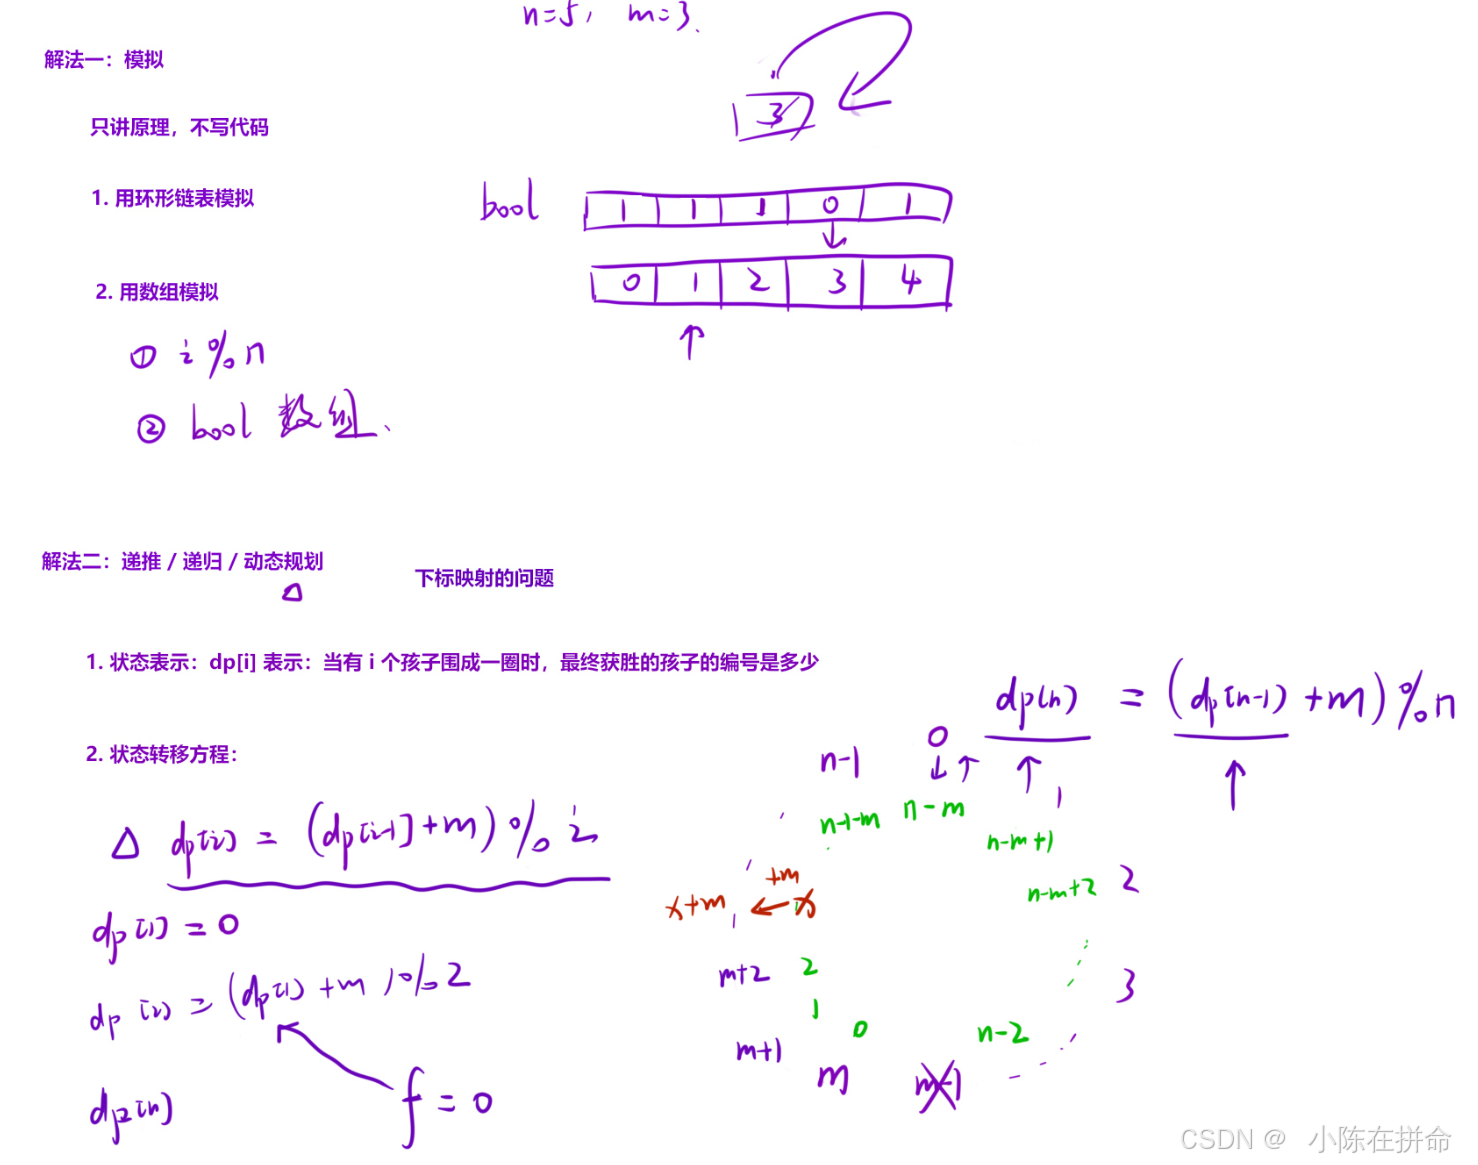 n=5, m=3.
解法一：模拟
3
只讲原理，不写代码
1. 用环形链表模拟
bool 1 1 1 0 1
0 1 2 3 4
2. 用数组模拟
① i%n
② bool 数组.
解法二：递推 / 递归 / 动态规划
下标映射的问题
1. 状态表示：dp[i] 表示：当有 i 个孩子围成一圈时，最终获胜的孩子的编号是多少
dp[n] = (dp[n-1] + m) % n
2. 状态转移方程：
△ dp[i] = (dp[i-1] + m) % i
dp[1] = 0
dp[2] = (dp[1] + m) % 2
dp[n]
f = 0
n-1 0 1
n-1-m n-m
n-m+1
n-m+2 2
+m
x+m x
m+2 2
3
1
0 n-2
m+1
m m-1
CSDN @ 小陈在拼命